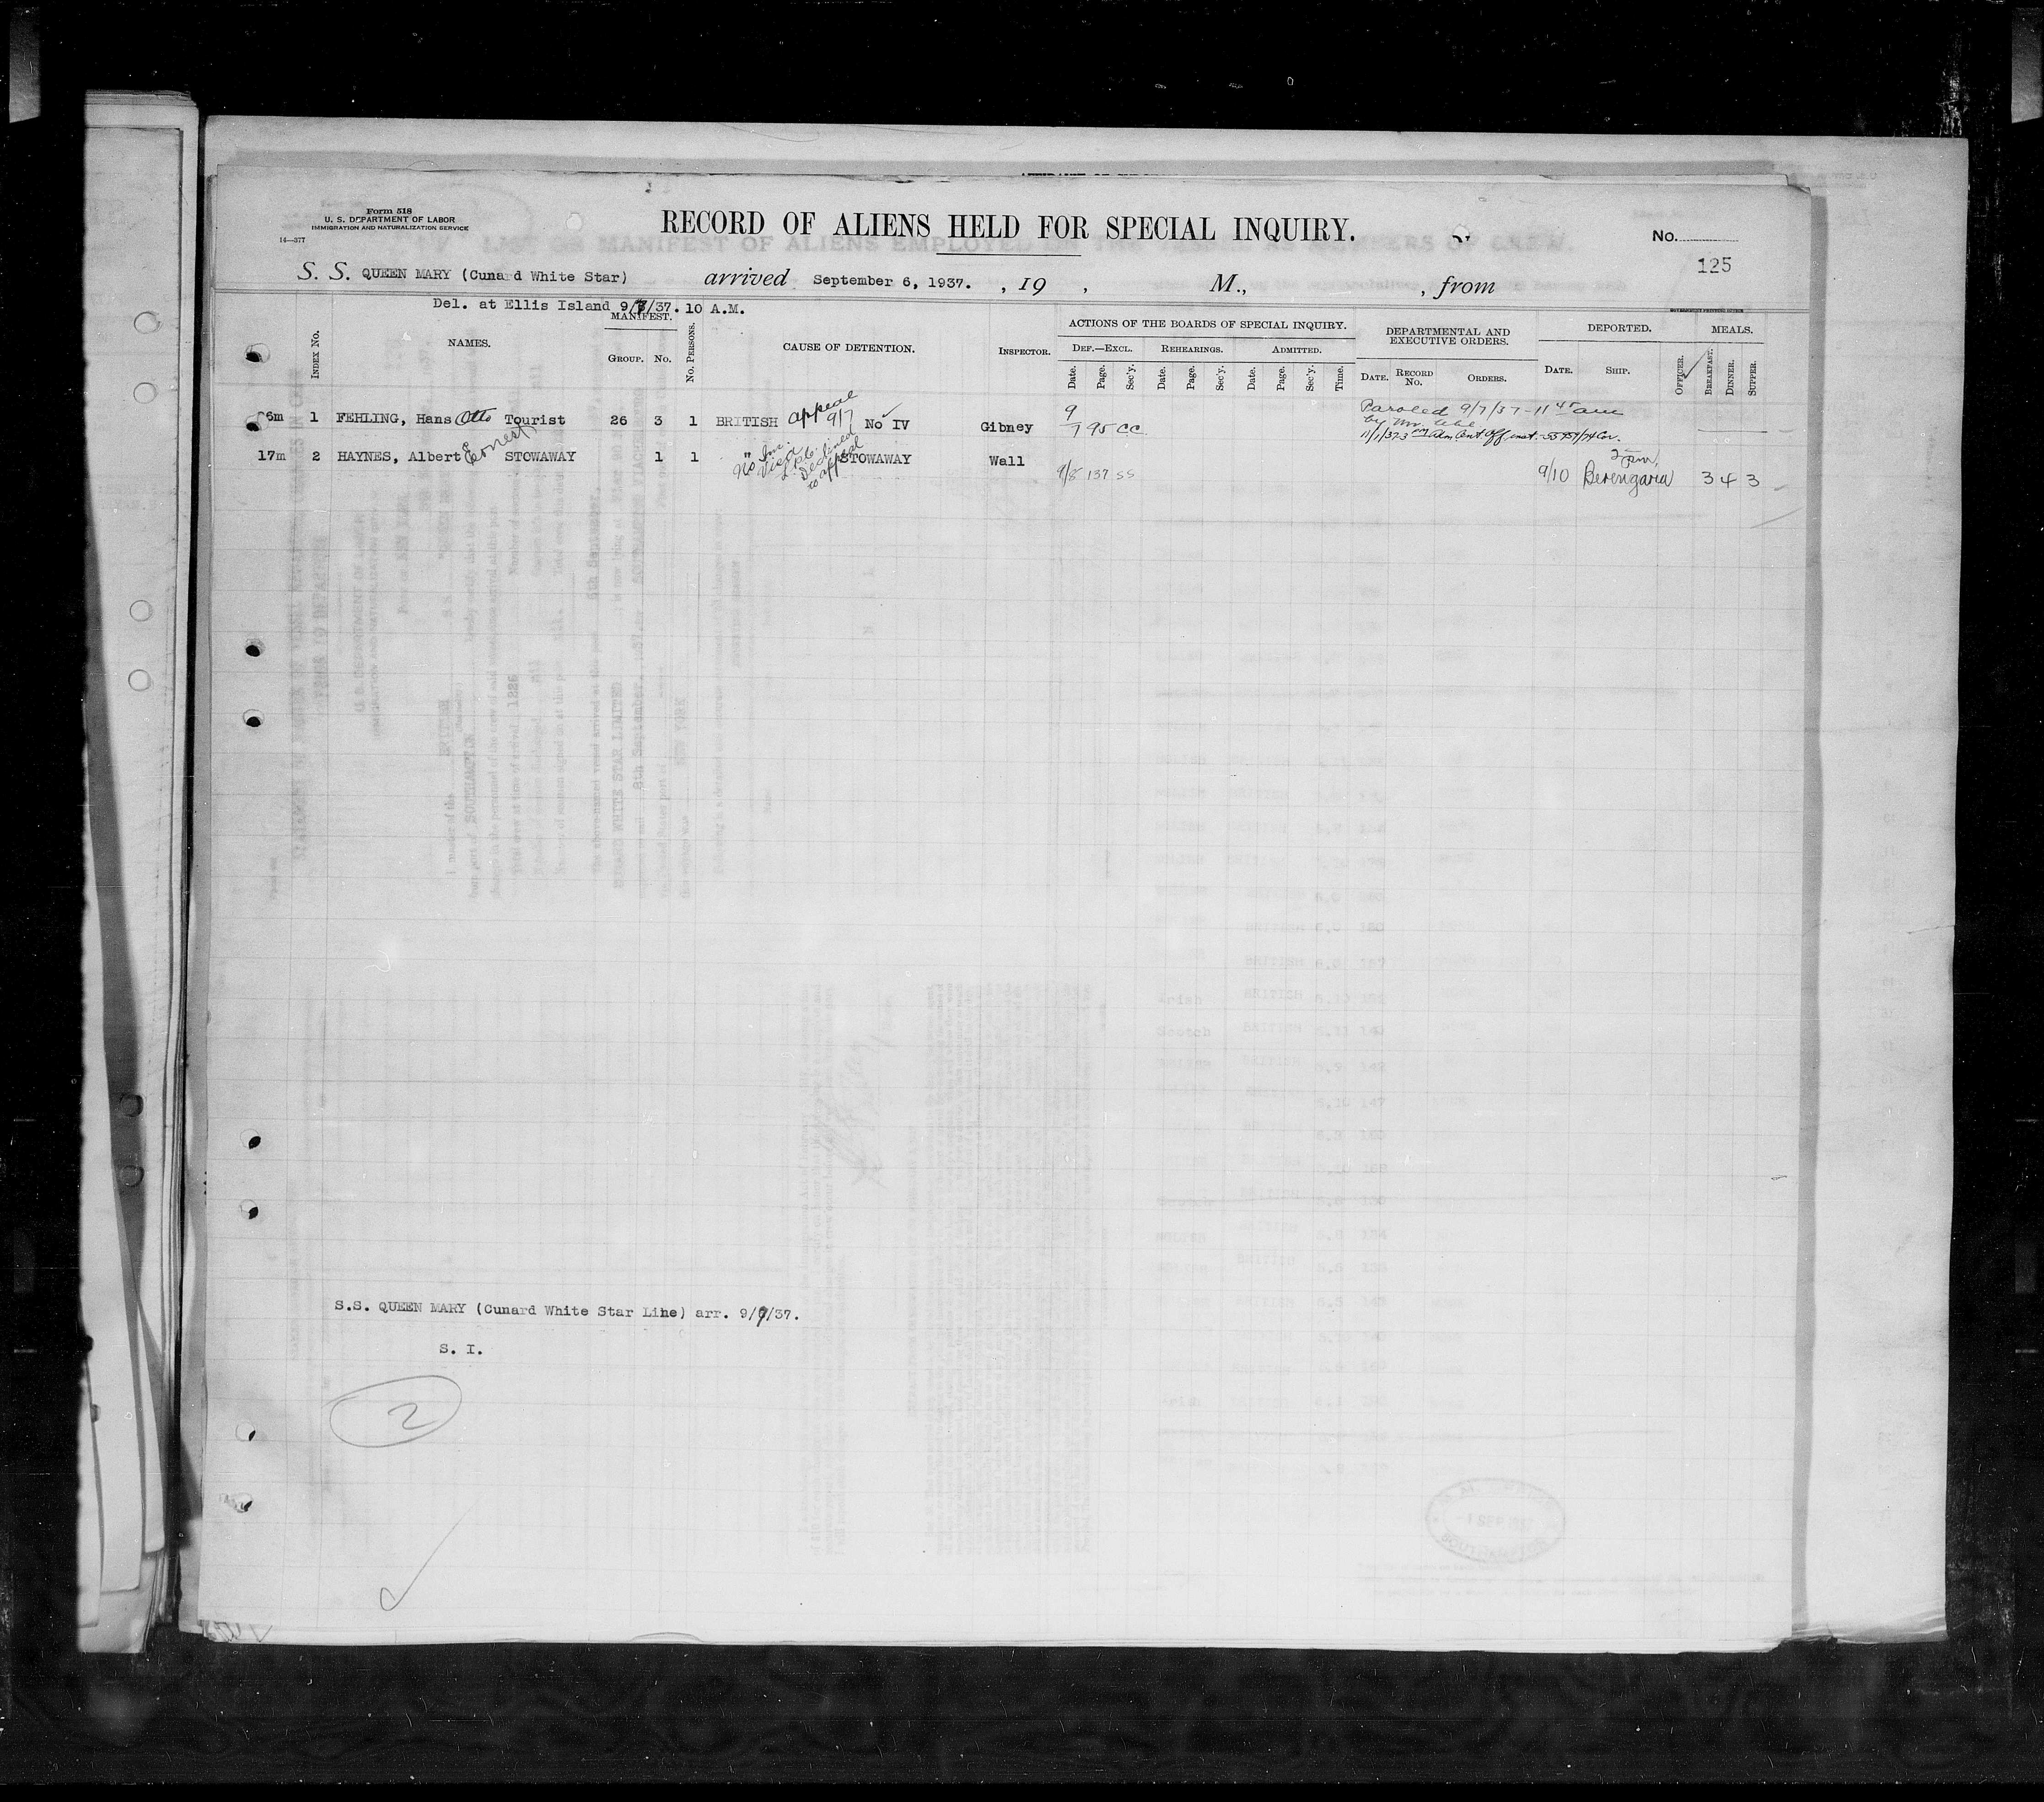 Form 518
U. S. DEPARTMENT OF LABOR
IMMIGRATION AND NATURALIZATION SERVICE
14—377
RECORD OF ALIENS HELD FOR SPECIAL INQUIRY.
No.
125
S. S. QUEEN MARY (Cunard White Star) arrived September 6, 1937. , 19 , M., , from
Del. at Ellis Island 9/7/37. 10 A.M.
INDEX No. NAMES. MANIFEST. GROUP. No. No. PERSONS. CAUSE OF DETENTION. INSPECTOR. ACTIONS OF THE BOARDS OF SPECIAL INQUIRY. DEF.—EXCL. REHEARINGS. ADMITTED. DEPARTMENTAL AND EXECUTIVE ORDERS. DEPORTED. MEALS.
Date. Page. Sec'y. Date. Page. Sec'y. Date. Page. Sec'y. Time. DATE. RECORD No. ORDERS. DATE. SHIP. OFFICER. BREAKFAST. DINNER. SUPPER.
6m 1 FEHLING, Hans Otto Tourist 26 3 1 BRITISH appeal 9/7 No IV Gibney 9/7 95 CC Paroled 9/7/37 - 11 45 am
by Mr.
17m 2 HAYNES, Albert Ernest STOWAWAY 1 1 " STOWAWAY Wall 9/8 137 SS 9/10 Berengaria 2 pm, 3 4 3
No Im. Visa
Declined to appeal
S.S. QUEEN MARY (Cunard White Star Line) arr. 9/7/37.
S. I.
2